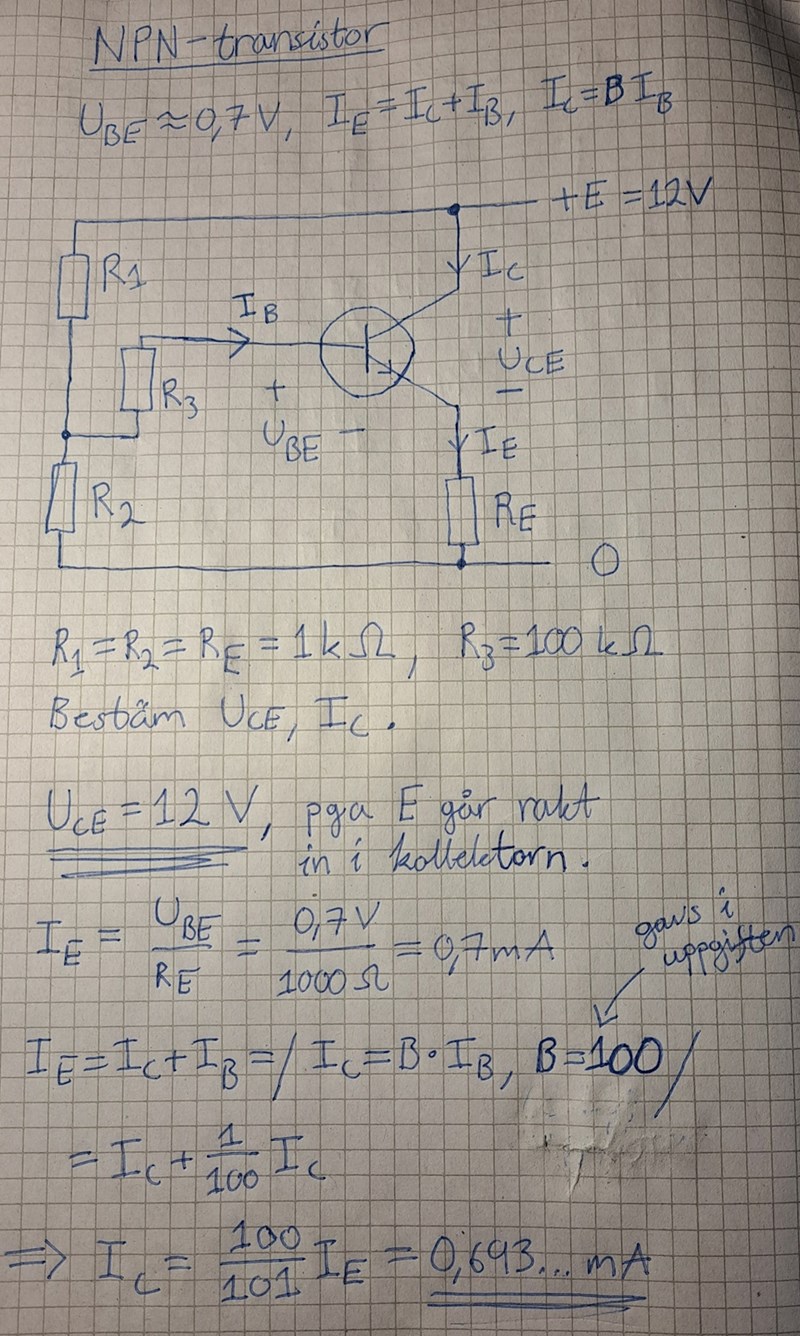 NPN-transistor
U_BE ≈ 0,7 V, I_E = I_C + I_B, I_C = B I_B
+E = 12V
R1
I_C
I_B
+
U_CE
−
R3
+
U_BE −
I_E
R2
R_E
0
R_1 = R_2 = R_E = 1 k Ω, R_3 = 100 k Ω
Bestäm U_CE, I_C.
U_CE = 12 V, pga E går rakt
in i kollektorn.
I_E = U_BE / R_E = 0,7 V / 1000 Ω = 0,7 mA
gavs i
uppgiften
I_E = I_C + I_B = / I_C = B · I_B, B = 100 /
= I_C + 1/100 I_C
⇒ I_C = 100/101 I_E = 0,693... mA